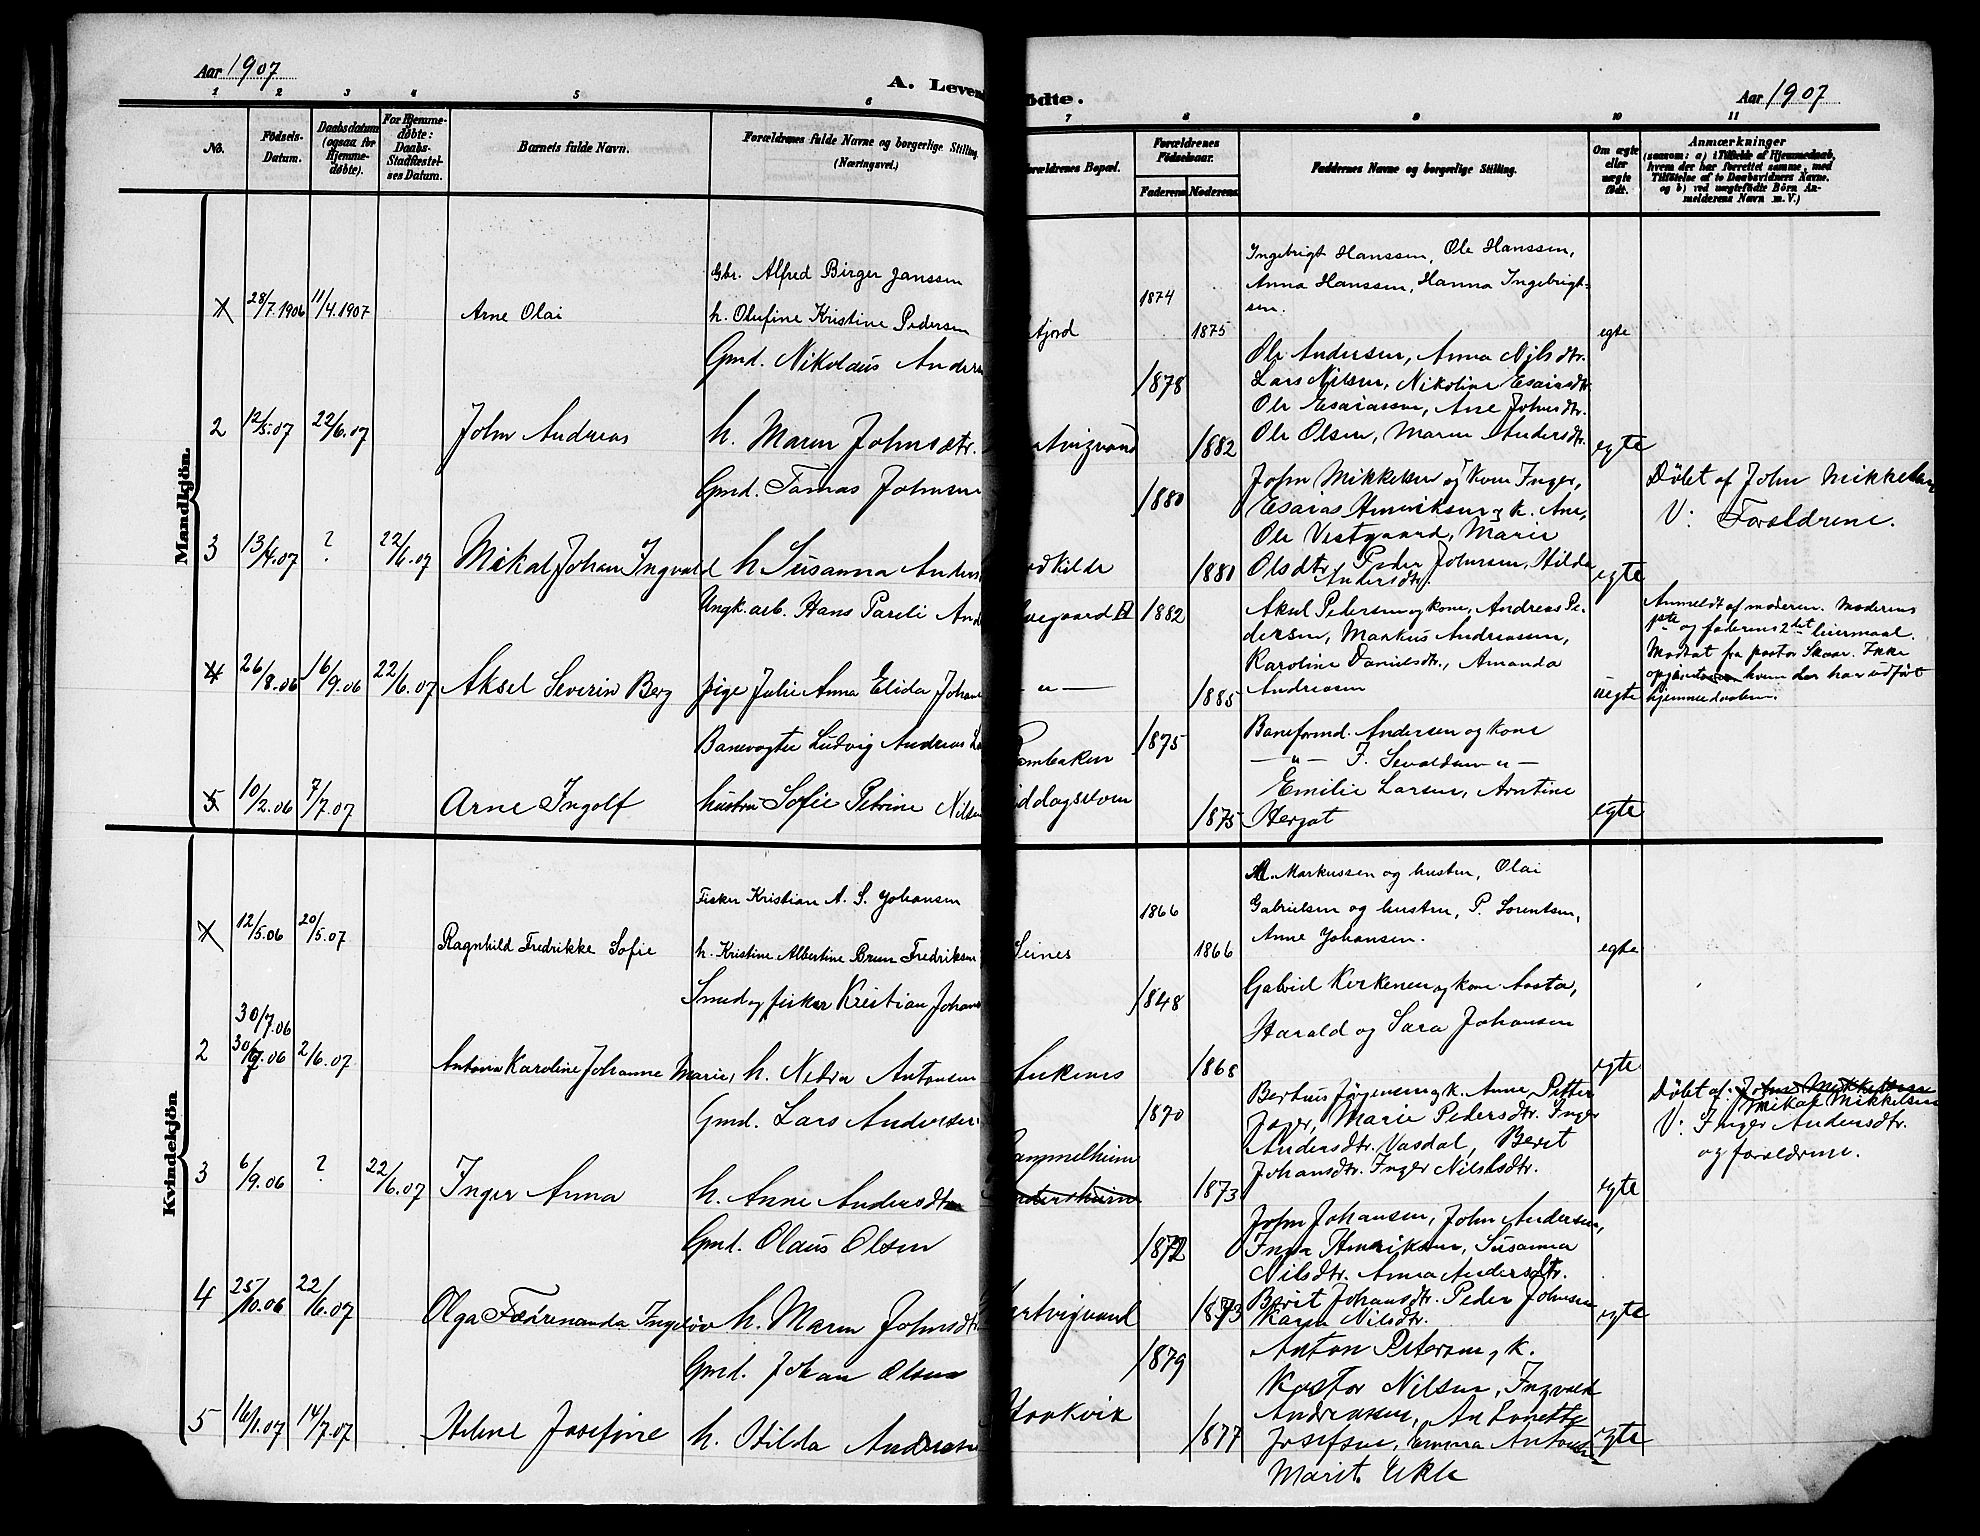 Aar 1907
A. Leven
ødte.
Aar 1907
1 2 3 4 5 6 7 8 9 10 11
No.
Fødsels-
Datum.
Daabsdatum
(ogsaa for
Hjemme-
døbte).
For Hjemme-
døbte:
Daabs-
Stadfæstel-
ses Datum.
Barnets fulde Navn.
Forældrenes fulde Navne og borgerlige Stilling.
(Næringsvei.)
orældrenes Bopæl.
Forældrenes
Fødselsaar.
Faderens Moderens
Faddernes Navne og borgerlige Stilling.
Om ægte
eller
uægte
født.
Anmærkninger
(saasom: a) i Tilfælde af Hjemmedaab,
hvem der har forrettet samme, med
Tilføielse af to Daabsvidners Navne.
og b) ved uægtefødte Børn An-
melderens Navn m. V.)
Mandkjön.
28/7.1906 11/4.1907 Arne Olai
Gbr. Alfred Birger Janssen
h. Olufine Kristine Pedersen
fjord
1874
1875
Ingebrigt Hanssen, Ole Hanssen,
Anna Hanssen, Hanna Ingebrigt-
sen.
egte
2 12/5.07 22/6.07 John Andreas
Gmd. Nikolaus Anders
h. Maren Johnsdtr.
1878
1882
Ole Andersen, Anna Nilsdtr.
Lars Nilsen, Nikoline Esaiasdtr.
Ole Esaiassen, Ane Johnsdtr.
Ole Olsen, Maren Andersdtr.
egte
3 13/4.07 ? 22/6.07 Mikal Johan Ingvald
Gmd. Tomas Johnsen
h Susanna Anders
dkilde
1880
1880
John Mikkelsen og kone Inger,
Esaias Henriksen og k. Ane,
Ole Vestgaard, Marie
Olsdtr. Peder Johnsen, Hilda
Andersdtr.
egte
Døbt af John Mikkelsen
V: Forældrene.
4 26/8.06 16/9.06 22/6.07 Aksel Severin Berg
Ungk. arb. Hans Pareli And
pige Julie Anna Elida Johan
- " -
1882
1885
Aksel Pedersen og kone, Andreas Pe-
dersen, Markus Andreassen,
Karoline Danielsdtr., Amanda
Andreasen
uegte
Anmeldt af moderen. Moderens
1ste og faderens 2det leiermaal.
Modtat fra pastor Skaar. Ikke
hvem der har udført
hjemmedaaben.
5 10/2.06 7/7.07 Arne Ingolf
Banevogter Ludvig Andreas La
hustru Sofie Petrine Nilsen
ombaken
1875
1875
Baneformd. Andersen og kone
- " - J. Sevaldsen - " -
Emilie Larsen, Arntine
Herjot
egte
Kvindekjön
12/5.06 20/5.07 Ragnhild Fredrikke Sofie
Fisker Kristian A. S. Johansen
h. Kristine Albertine Brun Fredriksen
Seines
1866
1866
M. Markussen og hustru, Olai
Gabrielsen og hustru, P. Lorentsen,
Anne Johansen.
egte
30/7.06
2 30/7.06 2/6.07 Antonia Karoline Johanne Marie,
Smed og fisker Kristian Johans
h. Nelva Antonsen
1848
1868
Gabriel Kirkenen og kone Aasta,
Harald og Sara Johansen
egte
3 6/9.06 ? 22/6.07 Inger Anna
Gmd. Lars Andersen
h. Anne Andersdtr
ammelheim
1870
1873
Berthus Jørgensen og k. Anne, Petter
Jager, Marie Pedersdtr. Inger
Andersdtr. Vasdal, Berit
Johansdtr. Inger Nilsdtr.
egte
Døbt af: John Mikkelsen
Mikal Mikkelsen
V: Inger Andersdtr.
og forældrene.
4 25/10.06 22/6.07 Olga Ingeløv
Gmd. Olaus Olsen
h. Maren Johnsdtr
artvigvand
1872
1873
John Johansen, John Andersen,
Inga Henriksen, Susanna
Nilsdtr. Anna Andersdtr.
Berit Johansdtr. Peder Johnsen
Karen Nilsdtr.
egte
5 16/1.07 14/7.07 Helene Josefine
Gmd. Johan Olsen
h. Otilda Andreasen
1879
1877
Anton Petersen og k.
Kastor Nilsen, Ingvald
Andreassen, Antonette
Josefsen, Emma Antonsen
Marit
egte